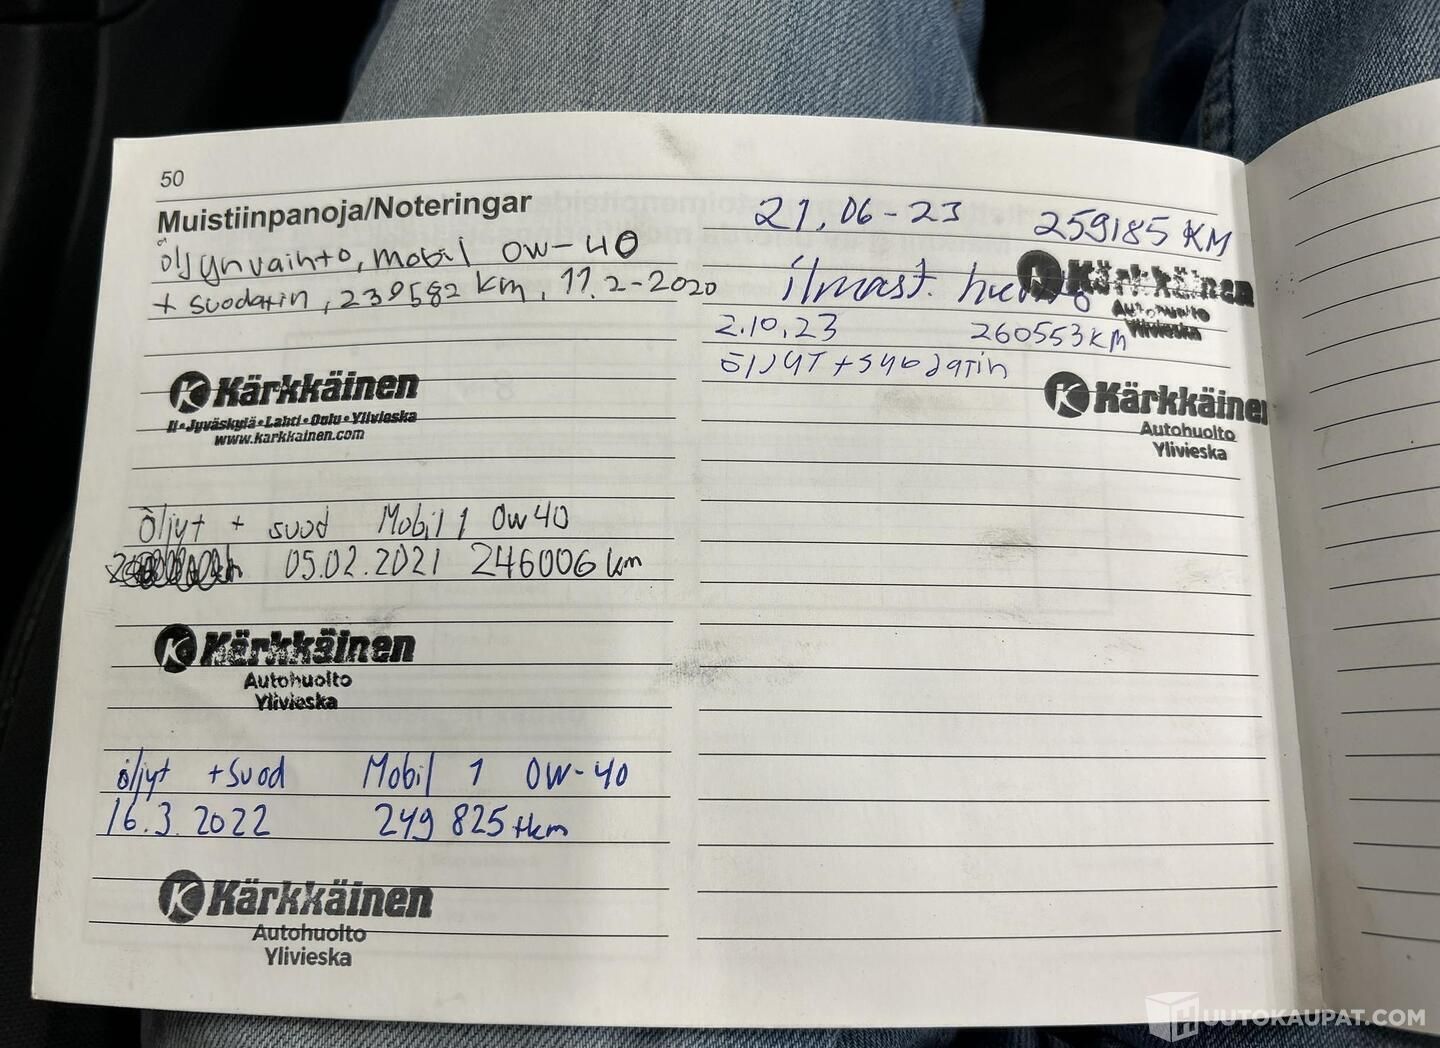 50
Muistiinpanoja/Noteringar
öljynvaihto, mobil 0w-40
+ suodatin, 239582 km, 11.2-2020
Kärkkäinen
Ii • Jyväskylä • Lahti • Oulu • Ylivieska
www.karkkainen.com
Öljyt + suod Mobil 1 0w40
05.02.2021 246006 km
Kärkkäinen
Autohuolto
Ylivieska
öljyt +suod Mobil 1 0W-40
16.3.2022 249 825 tkm
Kärkkäinen
Autohuolto
Ylivieska
21.06-23 259185 KM
ilmast. huolto
Kärkkäinen
Autohuolto
Ylivieska
2.10.23 260553 KM
ÖljyT + suodatin
Kärkkäinen
Autohuolto
Ylivieska
HUUTOKAUPAT.COM